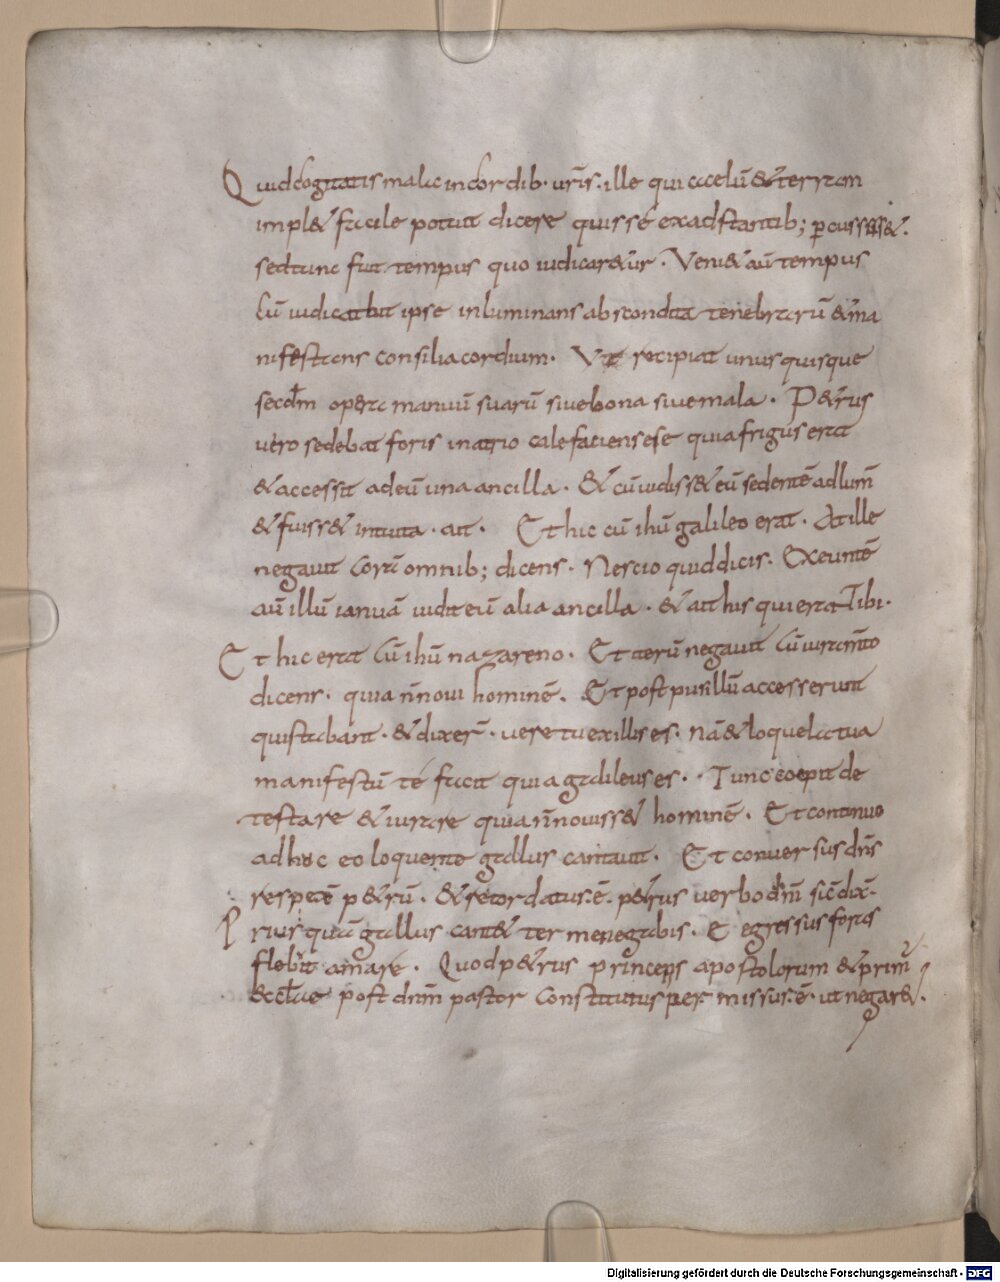 Quid cogitatis mala in cordib· uris̄· ille qui cœlū & terram
impl& facile potuit dicere quis sé ex adstantib; p̄cussiss&.
sed tunc fuit tempus quo iudicar&ur. Veni& aū tempus
cū iudicabit ipse inluminans abscondita tenebrarū & ma
nifestans consilia cordium. Vt recipiat unusquisque
secdm̄ opera manuū suarū siue bona siue mala. P&rus
uero sedebat foris in atrio calefaciens ese quia frigus erat
& accessit ad eū una ancilla. & cū uidiss& eū sedentē ad lum̄
& fuiss& intuita· ait. Et hic cū ihū galileo erat. At ille
negauit corā omnib; dicens. Nescio quid dicis. Exeuntē
aū illū ianuā uidit eū alia ancilla. & ait his qui erat Ibi.
Et hic erat cū ihū nazareno. Et iterū negauit cū iuram̄to
dicens. quia n̄ noui hominē. Et post pusillū accesserunt
qui stabant. & dixer̄. uere tu ex illis es. nā & loquela tua
manifestū té facit quia galileus es. Tunc coepit de
testare & iurare quia n̄ nouiss& hominē. Et continuo
ad hoc eo loquente gallus cantauit. Et conuersus dn̄s
respexit p&rū. & recordatus·ē· p&rus uerbo dn̄i sic̄ dix̄·
Prius quā gallus cant& ter me negabis. & egressus foras
fleuit amare. Quod p&rus princeps apostolorum & prim̄
eccl̄iae post dn̄m pastor constitutus permissus·ē· ut negar&.
Digitalisierung gefördert durch die Deutsche Forschungsgemeinschaft - DFG